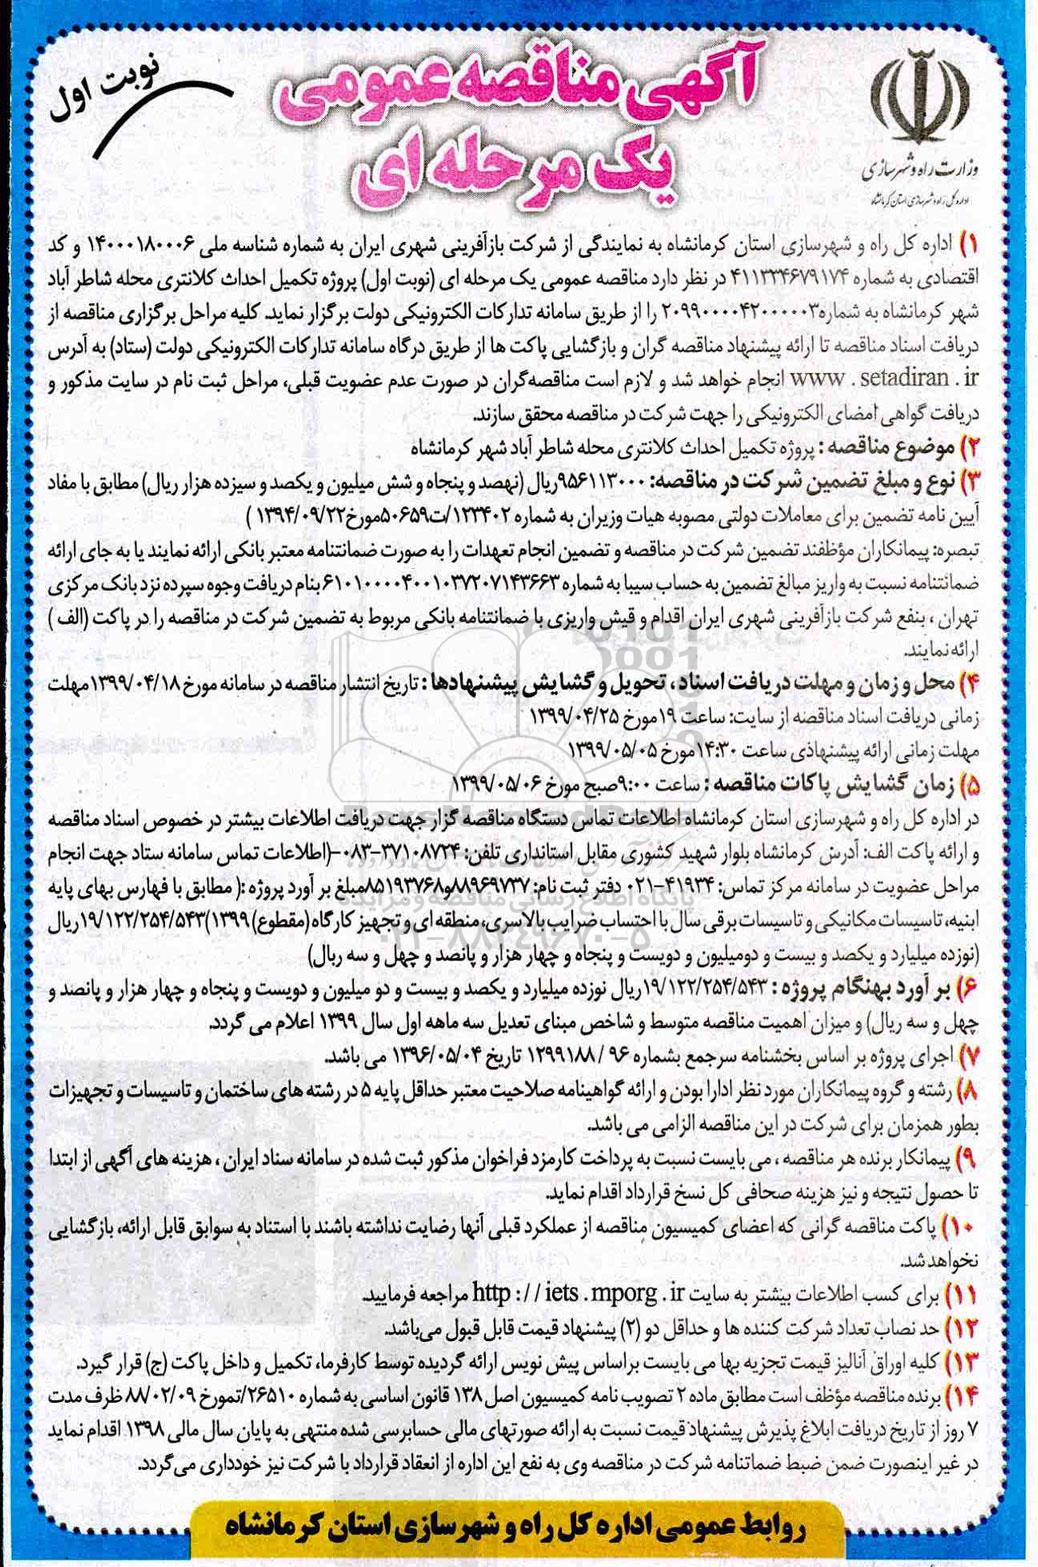 وزارت راه و شهرسازی
اداره کل راه و شهرسازی استان کرمانشاه
آگهی مناقصه عمومی
یک مرحله ای
نوبت اول
۱) اداره کل راه و شهرسازی استان کرمانشاه به نمایندگی از شرکت بازآفرینی شهری ایران به شماره شناسه ملی ۱۴۰۰۰۱۸۰۰۰۶ و کد
اقتصادی به شماره ۴۱۱۳۳۴۶۷۹۱۷۴ در نظر دارد مناقصه عمومی یک مرحله ای (نوبت اول) پروژه تکمیل احداث کلانتری محله شاطر آباد
شهر کرمانشاه به شماره۲۰۹۹۰۰۰۰۴۲۰۰۰۰۰۳ را از طریق سامانه تدارکات الکترونیکی دولت برگزار نماید. کلیه مراحل برگزاری مناقصه از
دریافت اسناد مناقصه تا ارائه پیشنهاد مناقصه گران و بازگشایی پاکت ها از طریق درگاه سامانه تدارکات الکترونیکی دولت (ستاد) به آدرس
www . setadiran . ir انجام خواهد شد و لازم است مناقصه‌گران در صورت عدم عضویت قبلی، مراحل ثبت نام در سایت مذکور و
دریافت گواهی امضای الکترونیکی را جهت شرکت در مناقصه محقق سازند.
۲) موضوع مناقصه : پروژه تکمیل احداث کلانتری محله شاطر آباد شهر کرمانشاه
۳) نوع و مبلغ تضمین شرکت در مناقصه: ۹۵۶۱۱۳۰۰۰ریال (نهصد و پنجاه و شش میلیون و یکصد و سیزده هزار ریال) مطابق با مفاد
آیین نامه تضمین برای معاملات دولتی مصوبه هیات وزیران به شماره ۱۲۳۴۰۲/ت۵۰۶۵۹مورخ۱۳۹۴/۰۹/۲۲ )
تبصره: پیمانکاران مؤظفند تضمین شرکت در مناقصه و تضمین انجام تعهدات را به صورت ضمانتنامه معتبر بانکی ارائه نمایند یا به جای ارائه
ضمانتنامه نسبت به واریز مبالغ تضمین به حساب سیبا به شماره ۶۱۰۱۰۰۰۰۴۰۰۱۰۳۷۲۰۷۱۴۳۶۶۳بنام دریافت وجوه سپرده نزد بانک مرکزی
تهران ، بنفع شرکت بازآفرینی شهری ایران اقدام و فیش واریزی با ضمانتنامه بانکی مربوط به تضمین شرکت در مناقصه را در پاکت (الف )
ارائه نمایند.
۴) محل و زمان و مهلت دریافت اسناد ، تحویل و گشایش پیشنهادها : تاریخ انتشار مناقصه در سامانه مورخ ۱۳۹۹/۰۴/۱۸مهلت
زمانی دریافت اسناد مناقصه از سایت: ساعت ۱۹مورخ ۱۳۹۹/۰۴/۲۵
مهلت زمانی ارائه پیشنهادی ساعت ۱۴:۳۰مورخ ۱۳۹۹/۰۵/۰۵
۵) زمان گشایش پاکات مناقصه : ساعت ۹:۰۰صبح مورخ ۱۳۹۹/۰۵/۰۶
در اداره کل راه و شهرسازی استان کرمانشاه اطلاعات تماس دستگاه مناقصه گزار جهت دریافت اطلاعات بیشتر در خصوص اسناد مناقصه
و ارائه پاکت الف: آدرس کرمانشاه بلوار شهید کشوری مقابل استانداری تلفن: ۳۷۱۰۸۷۲۴-۰۸۳-(اطلاعات تماس سامانه ستاد جهت انجام
مراحل عضویت در سامانه مرکز تماس: ۴۱۹۳۴-۰۲۱ دفتر ثبت نام: ۸۸۹۶۹۷۳۷و۸۵۱۹۳۷۶۸مبلغ بر آورد پروژه :( مطابق با فهارس بهای پایه
ابنیه، تاسیسات مکانیکی و تاسیسات برقی سال با احتساب ضرایب بالاسری، منطقه ای و تجهیز کارگاه (مقطوع) ۱۳۹۹)۱۹/۱۲۲/۲۵۴/۵۴۳ریال
(نوزده میلیارد و یکصد و بیست و دومیلیون و دویست و پنجاه و چهار هزار و پانصد و چهل و سه ریال)
۶) بر آورد بهنگام پروژه : ۱۹/۱۲۲/۲۵۴/۵۴۳ریال نوزده میلیارد و یکصد و بیست و دو میلیون و دویست و پنجاه و چهار هزار و پانصد و
چهل و سه ریال) و میزان اهمیت مناقصه متوسط و شاخص مبنای تعدیل سه ماهه اول سال ۱۳۹۹ اعلام می گردد.
۷) اجرای پروژه بر اساس بخشنامه سرجمع بشماره ۹۶ /۱۲۹۹۱۸۸ تاریخ ۱۳۹۶/۰۵/۰۴ می باشد.
۸) رشته و گروه پیمانکاران مورد نظر ادارا بودن و ارائه گواهینامه صلاحیت معتبر حداقل پایه ۵ در رشته های ساختمان و تاسیسات و تجهیزات
بطور همزمان برای شرکت در این مناقصه الزامی می باشد.
۹) پیمانکار برنده هر مناقصه ، می بایست نسبت به پرداخت کارمزد فراخوان مذکور ثبت شده در سامانه ستاد ایران ، هزینه های آگهی از ابتدا
تا حصول نتیجه و نیز هزینه صحافی کل نسخ قرارداد اقدام نماید.
۱۰) پاکت مناقصه گرانی که اعضای کمیسیون مناقصه از عملکرد قبلی آنها رضایت نداشته باشند با استناد به سوابق قابل ارائه، بازگشایی
نخواهد شد.
۱۱) برای کسب اطلاعات بیشتر به سایت http : // iets . mporg . ir مراجعه فرمایید.
۱۲) حد نصاب تعداد شرکت کننده ها و حداقل دو (۲) پیشنهاد قیمت قابل قبول می‌باشد.
۱۳) کلیه اوراق آنالیز قیمت تجزیه بها می بایست براساس پیش نویس ارائه گردیده توسط کارفرما، تکمیل و داخل پاکت (ج) قرار گیرد.
۱۴) برنده مناقصه مؤظف است مطابق ماده ۲ تصویب نامه کمیسیون اصل ۱۳۸ قانون اساسی به شماره ۲۶۵۱۰/تمورخ ۸۸/۰۲/۰۹ ظرف مدت
۷ روز از تاریخ دریافت ابلاغ پذیرش پیشنهاد قیمت نسبت به ارائه صورتهای مالی حسابرسی شده منتهی به پایان سال مالی ۱۳۹۸ اقدام نماید
در غیر اینصورت ضمن ضبط ضمانتنامه شرکت در مناقصه وی به نفع این اداره از انعقاد قرارداد با شرکت نیز خودداری می‌گردد.
روابط عمومی اداره کل راه و شهرسازی استان کرمانشاه